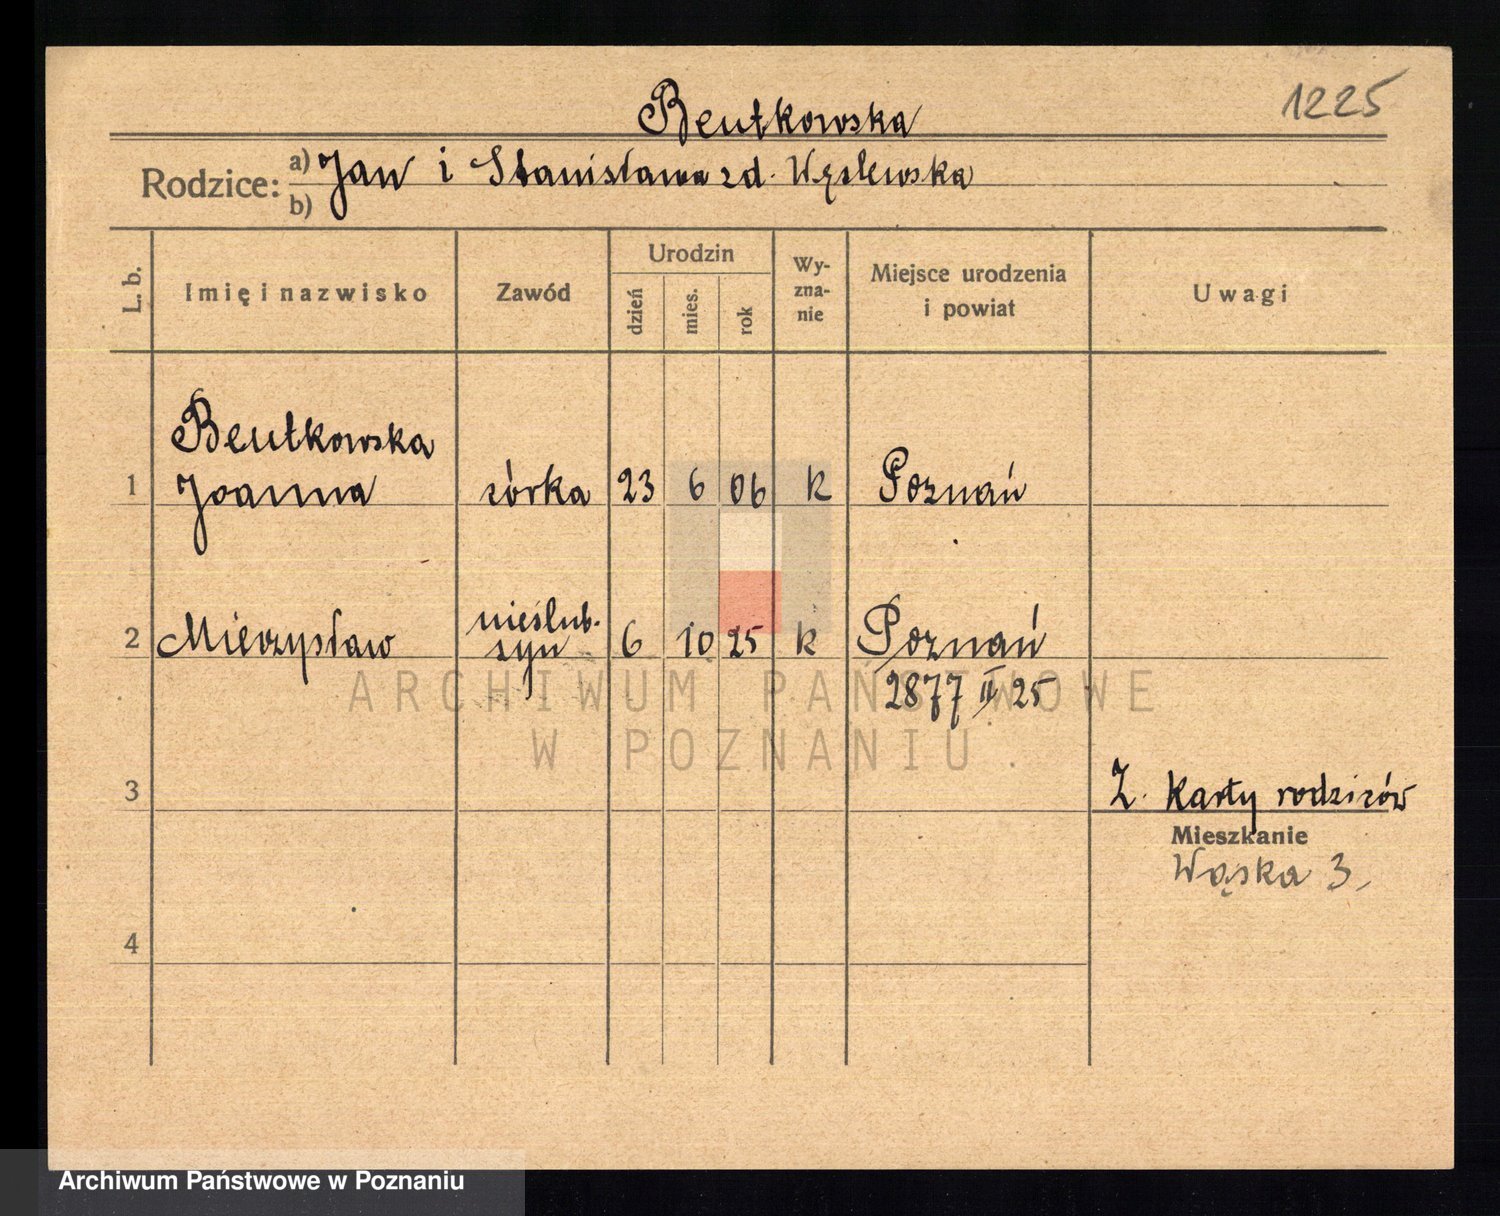 1225
Beutkowska
Rodzice: a) Jan i Stanisława zd. Węslewska
b)
L. b. Imię i nazwisko Zawód Urodzin dzień mies. rok Wy-zna-nie Miejsce urodzenia i powiat Uwagi
Beutkowska
1 Joanna córka 23 6 06 k Poznań
nieślub.
2 Mieczysław syn 6 10 25 k Poznań
2877 II 25
ARCHIWUM PAŃSTWOWE
W POZNANIU
3 Z. karty rodziców
Mieszkanie
Wąska 3,
4
Archiwum Państwowe w Poznaniu